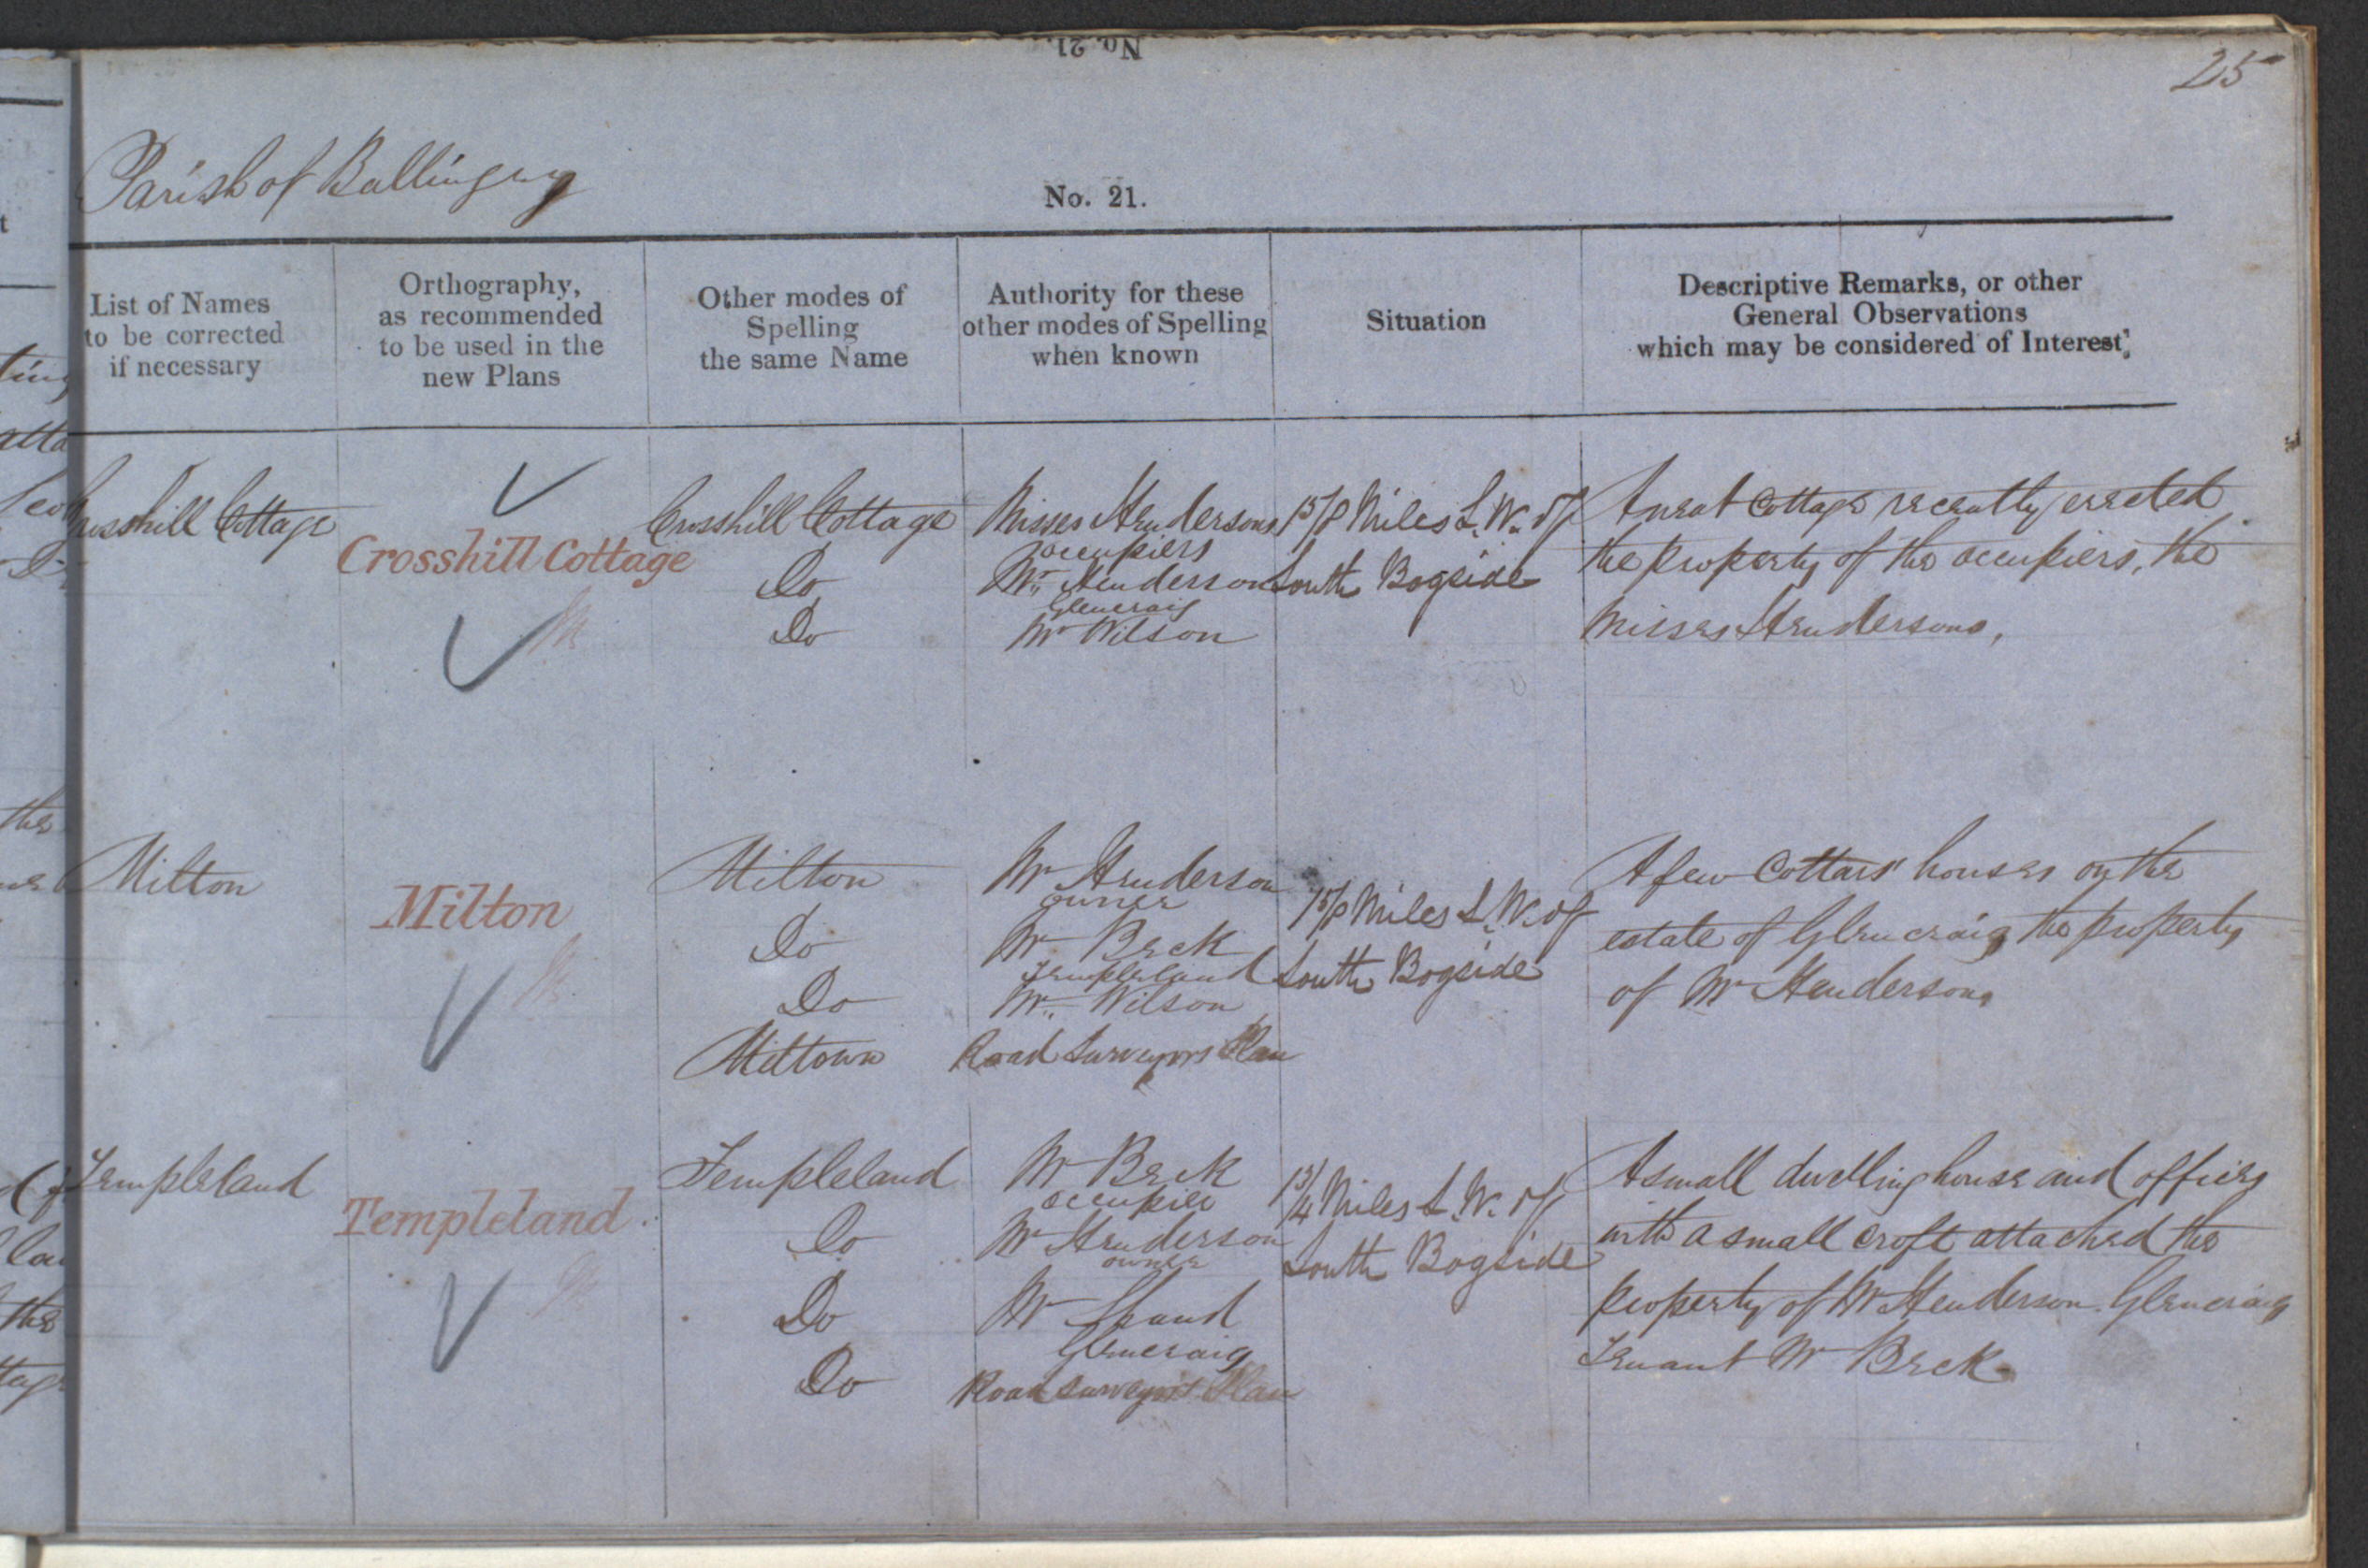 No. 21.
25
Parish of Ballingry
No. 21.
List of Names
to be corrected
if necessary
Orthography,
as recommended
to be used in the
new Plans
Other modes of
Spelling
the same Name
Authority for these
other modes of Spelling
when known
Situation
Descriptive Remarks, or other
General Observations
which may be considered of Interest
Crosshill Cottage
Crosshill Cottage
Crosshill Cottage
Do
Do
Misses Hendersons
occupiers
Mr. Henderson
Glencraig
Mr Wilson
1 5/8 Miles S.W. of
South Bogside
A neat Cottage recently erected
the property of the occupiers, the
Misses Hendersons,
Milton
Milton
Milton
Do
Do
Miltown
Mr Henderson
owner
Mr Beck
Templeland
Mr. Wilson
Road Surveyors Plan
1 5/8 Miles S.W. of
South Bogside
A few Cottars' houses on the
estate of Glencraig the property
of Mr Henderson,
Templeland
Templeland
Templeland
Do
Do
Do
Mr Beck
occupier
Mr Henderson
owner
Mr Shand
Glencraig
Road Surveyors Plan
1 3/4 Miles S.W. of
South Bogside
A small dwelling house and offices
with a small croft attached the
property of Mr Henderson Glencraig
Tenant Mr Beck